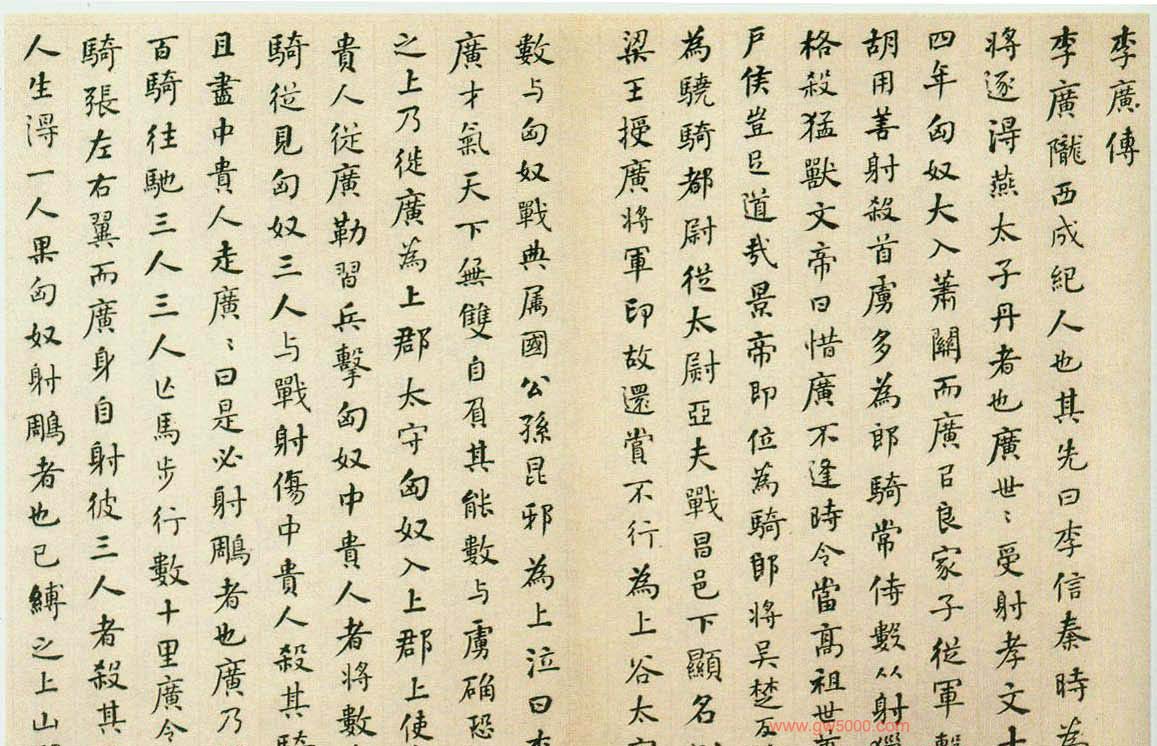 李廣傳
李廣隴西成紀人也其先曰李信秦時為
將逐淂燕太子丹者也廣世〻受射孝文十
四年匈奴大入蕭關而廣㠯良家子從軍擊
胡用善射殺首虜多為郎騎常侍數從射獵
格殺猛獸文帝曰惜廣不逢時令當高祖世萬
戶侯豈㠯道㢤景帝即位為騎郎將吴楚反
為驍騎都尉從太尉亞夫戰昌邑下顯名
梁王授廣將軍印故還賞不行為上谷太守
數与匈奴戰典属國公孫昆邪為上泣曰李
廣才氣天下無雙自負其能數与虜确恐
之上乃徙廣為上郡太守匈奴入上郡上使
貴人從廣勒習兵擊匈奴中貴人者將數
騎從見匈奴三人与戰射傷中貴人殺其騎
且盡中貴人走廣〻曰是必射鵰者也廣乃
百騎往馳三人三人亾馬步行數十里廣令
騎張左右翼而廣身自射彼三人者殺其
人生淂一人果匈奴射鵰者也已縛之上山
www.gw5000.com